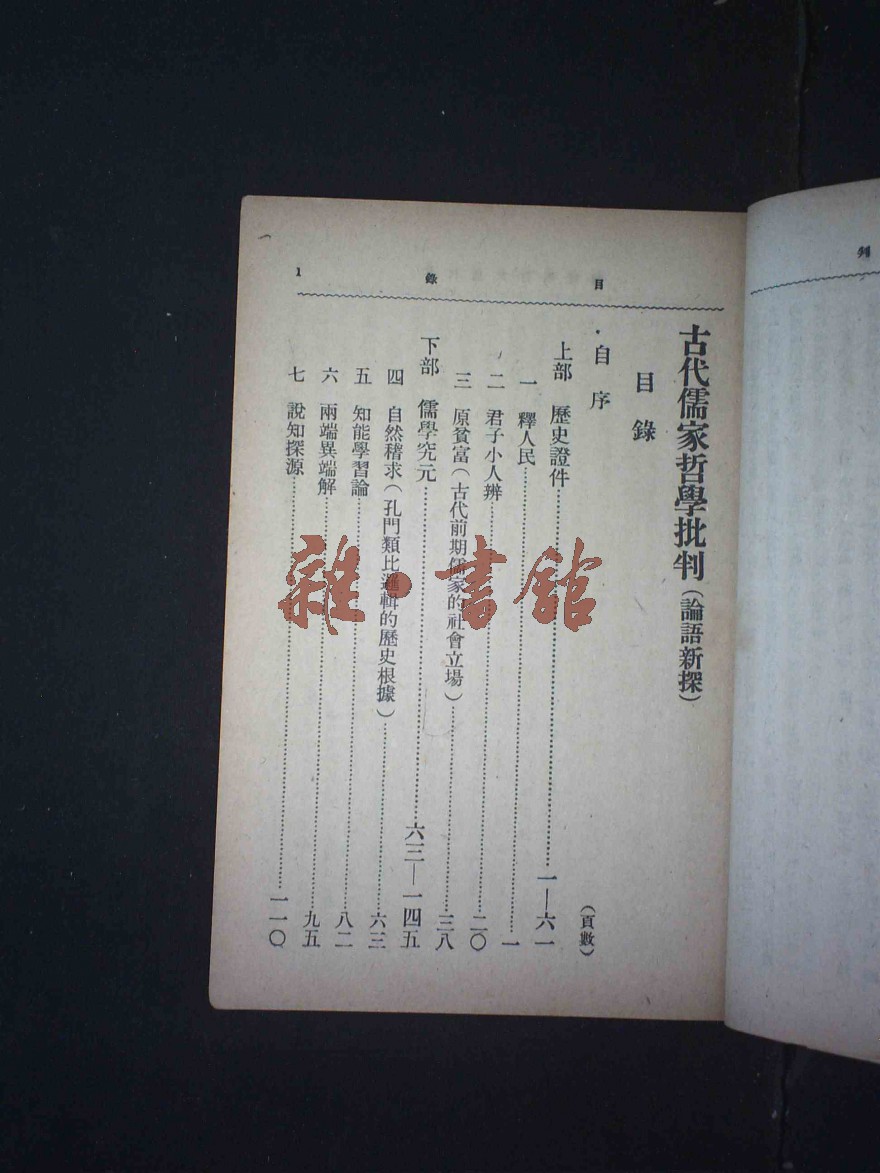 目錄 1
古代儒家哲學批判(論語新探)
目錄
自序 (頁數)
上部 歷史證件 一—六一
一 釋人民 一
二 君子小人辨 二〇
三 原貧富(古代前期儒家的社會立場) 三八
下部 儒學究元 六三—一四五
四 自然稽求(孔門類比邏輯的歷史根據) 六三
五 知能學習論 八二
六 兩端異端解 九五
七 說知探源 一一〇
列
雜·書館